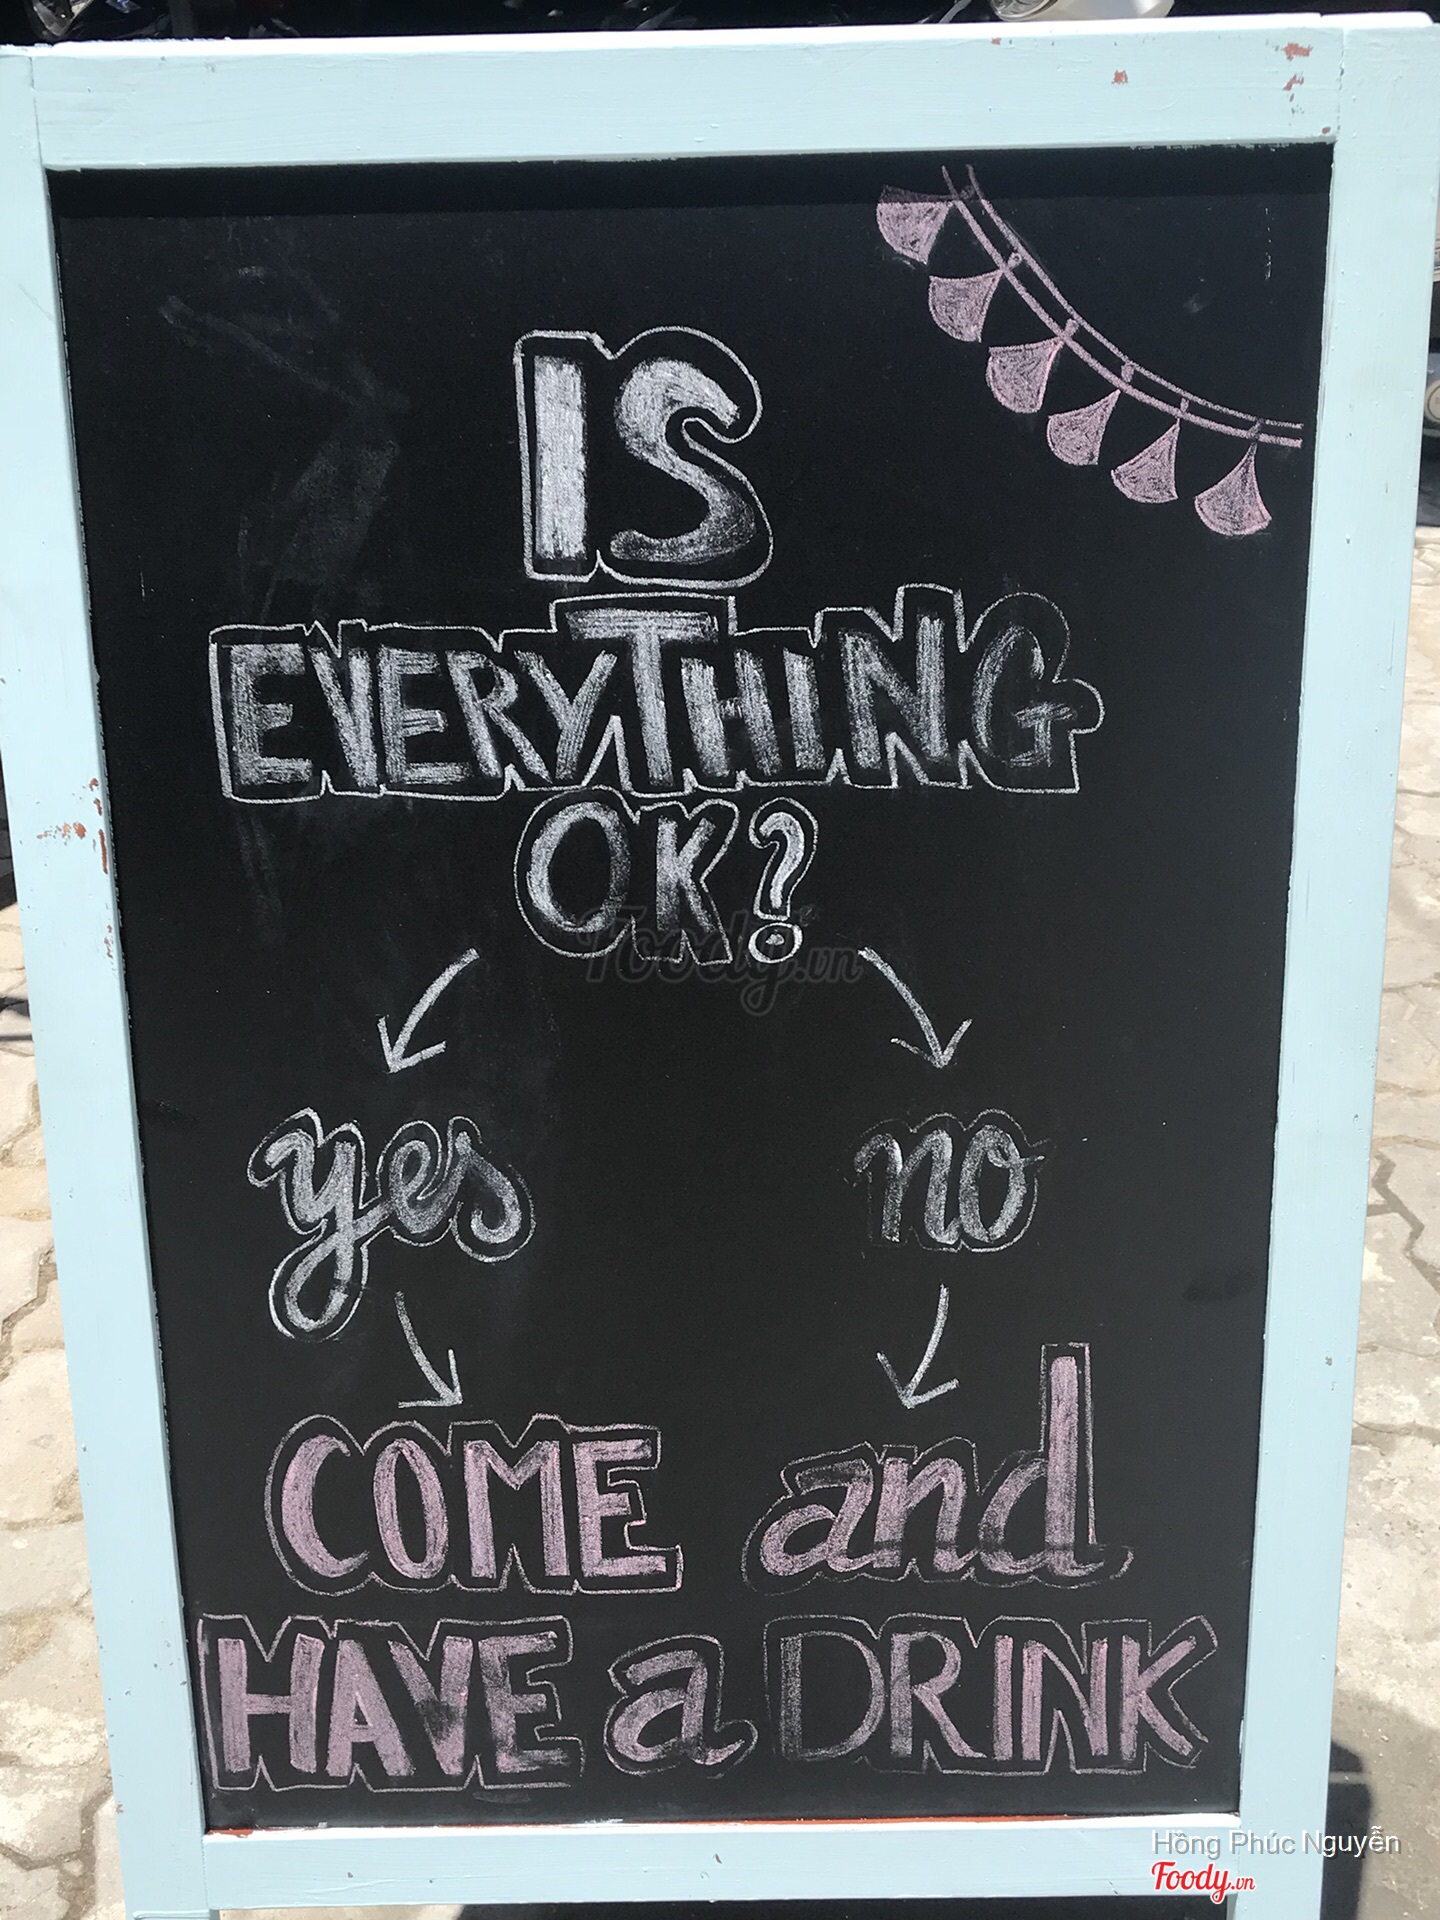 IS
EVERYTHING
OK?
Foody.vn
yes no
COME and
HAVE a DRINK
Hồng Phúc Nguyễn
Foody.vn